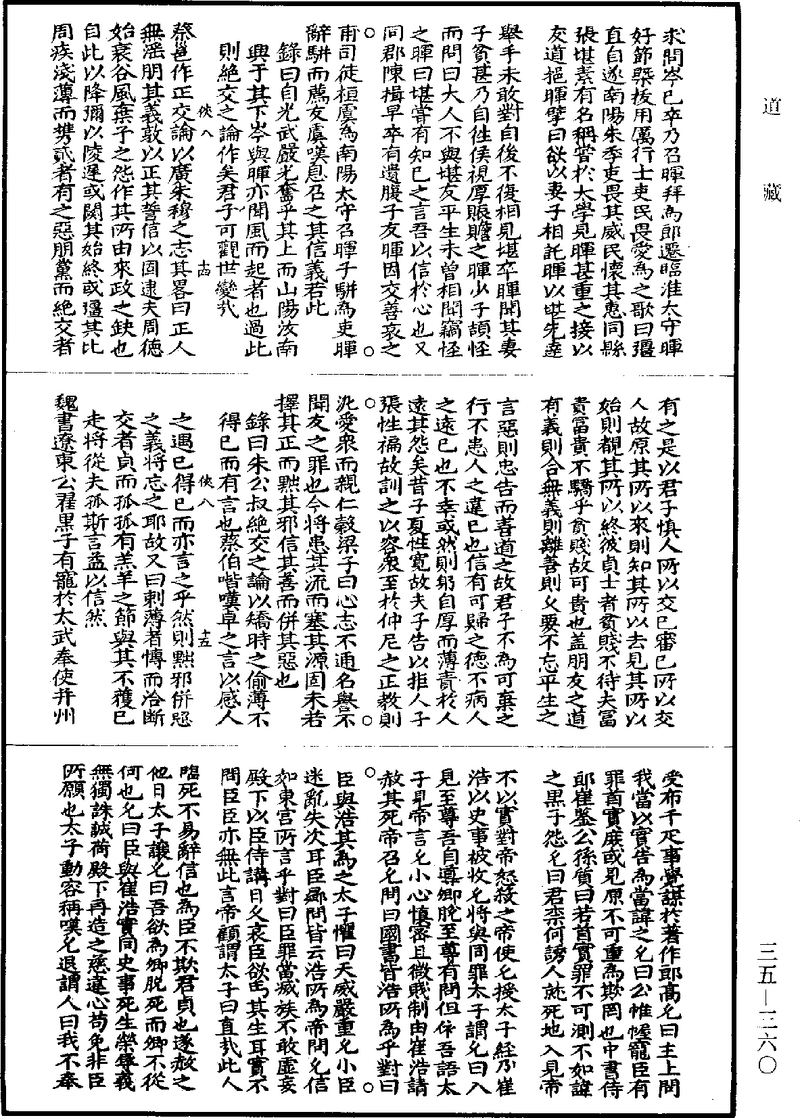 道藏
求問岑已卒乃召暉拜為郎遷臨淮太守暉
好節槩拔用厲行士吏民畏愛為之歌曰彊
直自遂南陽朱季吏畏其威民懷其惠同縣
張堪素有名稱嘗於大學見暉甚重之接以
友道挹暉擘曰欲以妻子相託暉以堪先達
舉手未敢對自後不復相見堪卒暉聞其妻
子貧甚乃自往侯視厚賑贍之暉少子頡怪
而問曰大人不與堪友平生未曾相聞竊怪
之暉曰堪嘗有知己之言吾以信於心也又
同郡陳楫早卒有遺腹子友暉因交善哀之
甫司徒桓虞為南陽太守召暉子駢為吏暉
辭駢而薦友虞嘆息召之其信義若此
錄曰自光武嚴光奮乎其上而山陽汝南
興于其下岑與暉亦聞風而起者也過此
則絕交之論作矣君子可觀世變哉
俠八
十四
蔡邕作正交論以廣朱穆之志其畧曰正人
無淫朋其義敦以正其誓信以固逮夫周德
始衰谷風棄子之怨作其所由來政之缺也
自此以降彌以陵遲或闕其始終或彊其比
周疾淺薄而携貳者有之惡朋黨而絕交者
有之是以君子慎人所以交已審已所以交
人故原其所以來則知其所以去見其所以
始則覩其所以終彼貞士者貧賤不待夫富
貴富貴不驕乎貧賤故可貴也盖朋友之道
有義則合無義則離善則久要不忘平生之
言惡則忠告而善道之故君子不為可棄之
行不患人之遺已也信有可歸之德不病人
之遠已也不幸或然則躬自厚而薄責於人
遠其怨矣昔子夏性寬故夫子告以拒人子
張性褊故訓之以容衆至於仲尼之正教則
汎愛衆而親仁穀梁子曰心志不通名譽不
聞友之罪也今將患其流而塞其源固未若
擇其正而黜其邪信其善而併其惡也
錄曰朱公叔絕交之論以矯時之偷薄不
得已而有言也蔡伯喈嘆卓之言以感人
俠八
十五
之遇已得已而亦言之乎然則黜邪併惡
之義將忘之耶故又曰刺薄者慱而洽斷
交者貞而孤孤有羔羊之節與其不獲已
走將從夫孤斯言益以信然
魏書遼東公翟黒子有寵於太武奉使并州
受布千疋事覺謀於著作郎高允曰主上問
我當以實告為當諱之允曰公帷幄寵臣有
罪首實庶或見原不可重為欺罔也中書侍
郎崔鑒公孫質曰若首實罪不可測不如諱
之黒子怨允曰君柰何誘人就死地入見帝
不以實對帝怒殺之帝使允授太子經乃崔
浩以史事被收允將與同罪太子謂允曰入
見至尊吾自導卿脫至尊有問但依吾語太
子見帝言允小心慎宻且微賤制由崔浩請
赦其死帝召允問曰國書皆浩所為乎對曰
臣與浩其為之太子懼曰天威嚴重允小臣
迷亂失次耳臣曏問皆云浩所為帝問允信
如東宮所言乎對曰臣罪當滅族不敢虛妄
殿下以臣侍講日久哀臣欲丐其生耳實不
問臣臣亦無此言帝顧謂太子曰直哉此人
臨死不易辭信也為臣不欺君貞也遂赦之
他日太子讓允曰吾欲為卿脫死而卿不從
何也允曰臣與崔浩實同史事死生榮辱義
無獨誅誠荷殿下再造之慈違心苟免非臣
所願也太子動容稱嘆允退謂人曰我不奉
三五—三六〇